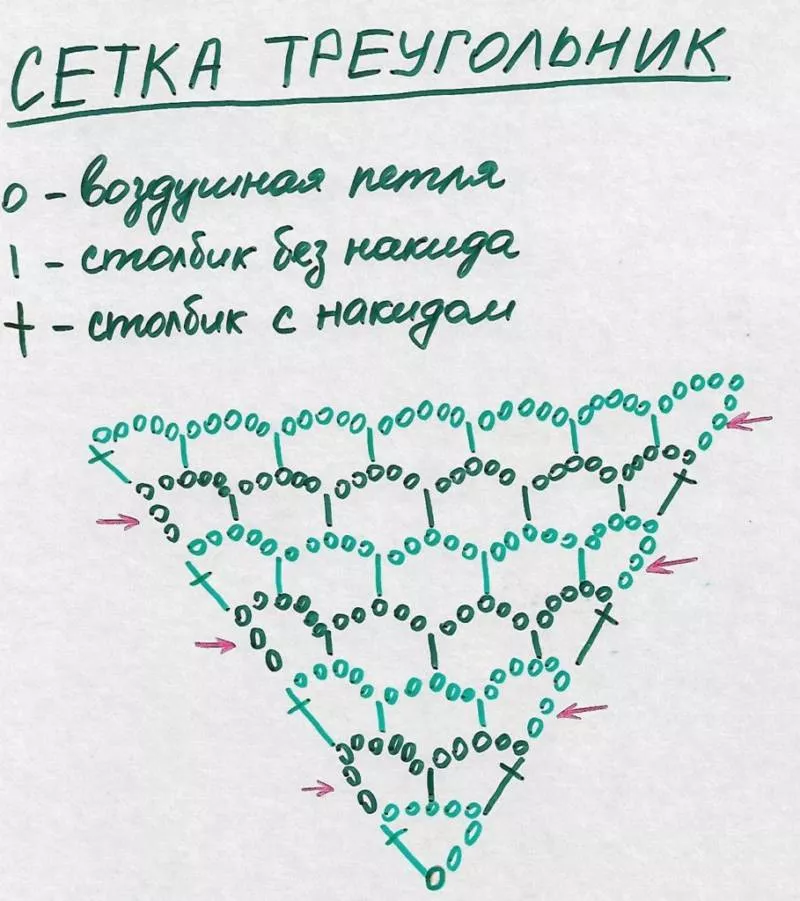 СЕТКА ТРЕУГОЛЬНИК
о - воздушная петля
ı - столбик без накида
† - столбик с накидом